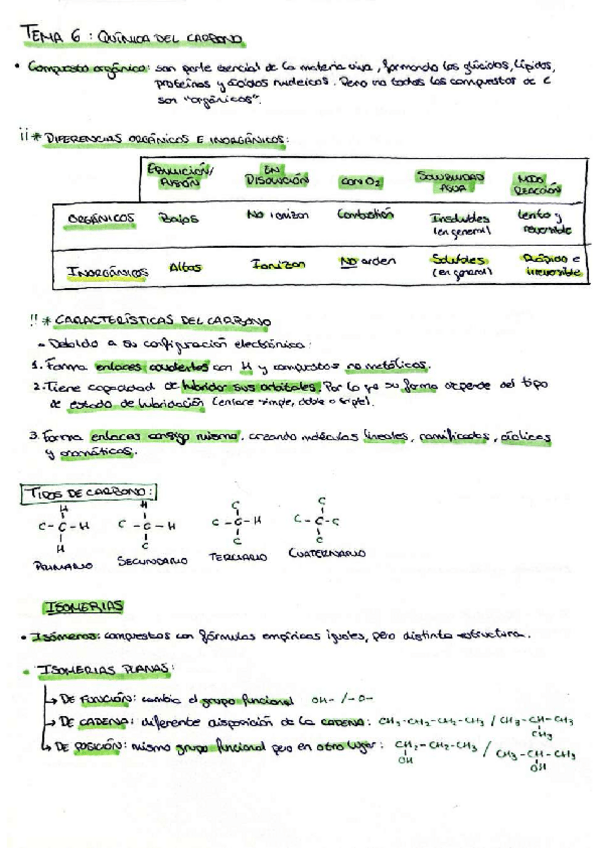 TEMA 6: QUÍMICA DEL CARBONO
• Compuesto orgánico: son parte esencial de la materia viva, formando los glúcidos, lípidos,
proteínas y ácidos nucleicos. Pero no todos los compuestos de C
son "orgánicos".
¡¡* DIFERENCIAS ORGÁNICOS E INORGÁNICOS:
EBULLICIÓN/ FUSIÓN EN DISOLUCIÓN CON O2 SOLUBILIDAD AGUA MODO REACCIÓN
ORGÁNICOS Bajas No ionizan Combustión Insolubles (en general) Lento y reversible
INORGÁNICOS Altas Ionizan NO arden Solubles (en general) Rápido e irreversible
!!* CARACTERÍSTICAS DEL CARBONO
- Debido a su configuración electrónica:
1. Forma enlaces covalentes con H y compuestos no metálicos.
2. Tiene capacidad de hibridar sus orbitales. Por lo que su forma depende del tipo
de estado de hibridación (enlace simple, doble o triple).
3. Forma enlaces consigo mismo, creando moléculas lineales, ramificadas, cíclicas
y aromáticas.
TIPOS DE CARBONO:
H H C C
C-C-H C-C-H C-C-H C-C-C
H C C C
PRIMARIO SECUNDARIO TERCIARIO CUATERNARIO
ISOMERIAS
• Isómeros: compuestos con fórmulas empíricas iguales, pero distinta estructura.
• ISOMERIAS PLANAS:
↳ DE FUNCIÓN: cambia el grupo funcional OH- / -O-
↳ DE CADENA: diferente disposición de la CADENA: CH3-CH2-CH2-CH3 / CH3-CH-CH3
CH3
↳ DE POSICIÓN: mismo grupo funcional pero en otro lugar: CH2-CH2-CH3 / CH3-CH-CH3
OH OH